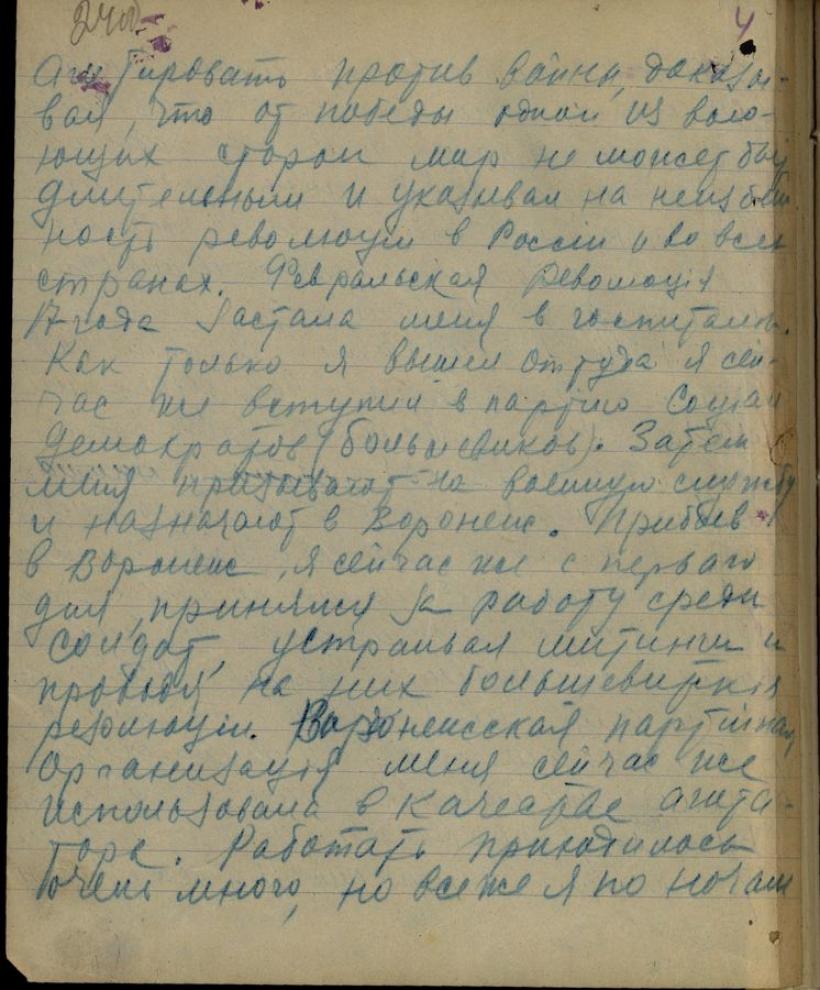 4
Агитировать против войны, доказы-
вая, что от победы одной из вою-
ющих сторон мир не может быть
длительным и указывал на неизбеж-
ность революции в Россіи и во всех
странах. Февральская Революція
17 года застала меня в госпитале.
Как только я вышел оттуда я сей-
час же вступил в партію Соціал
демократов (большевиков). Затем
меня призывают на военную службу
и назначают в Воронеж. Прибыв
в Воронеж, я сейчас же с перваго
дня, принялся за работу среди
солдат, устраивая митинги и
проводя на них большевитскія
резолюции. Воронежсская партійная
Организація меня сейчас же
использовала в качестве агита-
тора. Работать приходилось
очень много, но все же я по ночам